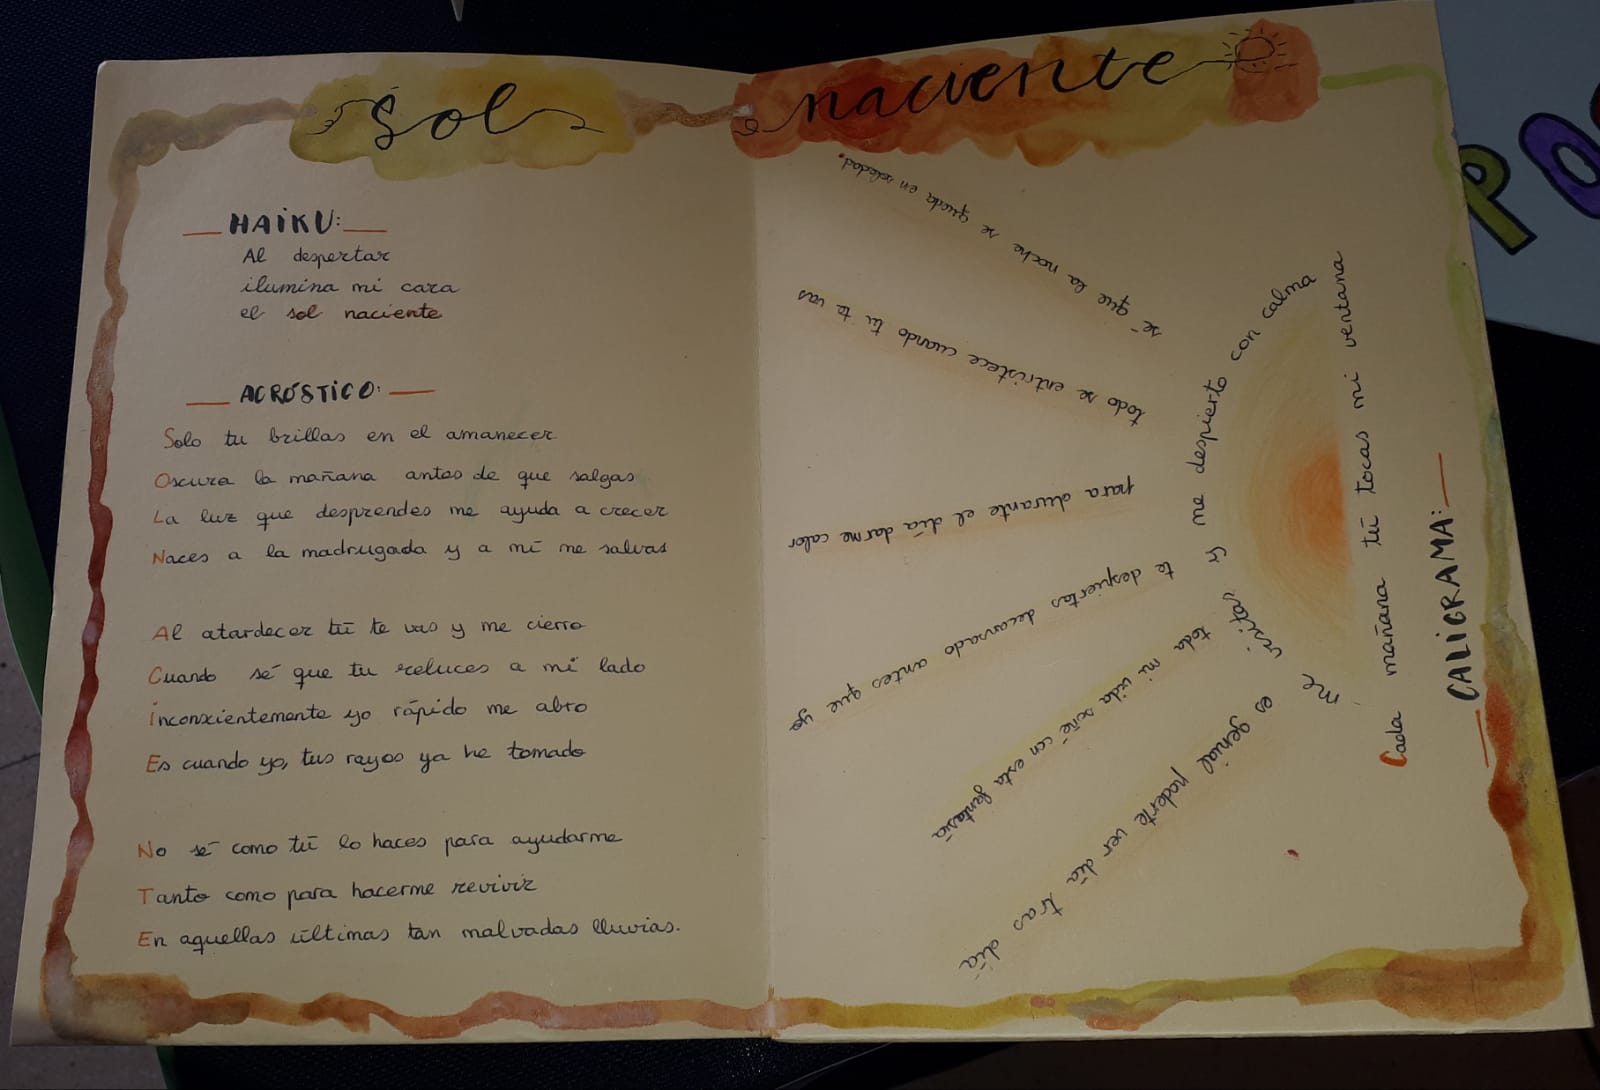 Sol naciente
HAIKU:
Al despertar
ilumina mi cara
el sol naciente
ACRÓSTICO:
Solo tu brillas en el amanecer
Oscura la mañana antes de que salgas
La luz que desprendes me ayuda a crecer
Naces a la madrugada y a mí me salvas
Al atardecer tú te vas y me cierro
Cuando sé que tu reluces a mi lado
inconscientemente yo rápido me abro
Es cuando yo, tus rayos ya he tomado
No sé como tú lo haces para ayudarme
Tanto como para hacerme revivir
En aquellas últimas tan malvadas lluvias.
CALIGRAMA:
Cada mañana tú tocas mi ventana
me y me despierto con calma
es genial poderte ver día tras día
toda mi vida soñé con esta fantasía
te despiertas decorado antes que yo
para durante el día darme calor
todo se entristece cuando tú te vas
sé que la noche se queda en soledad.
PO